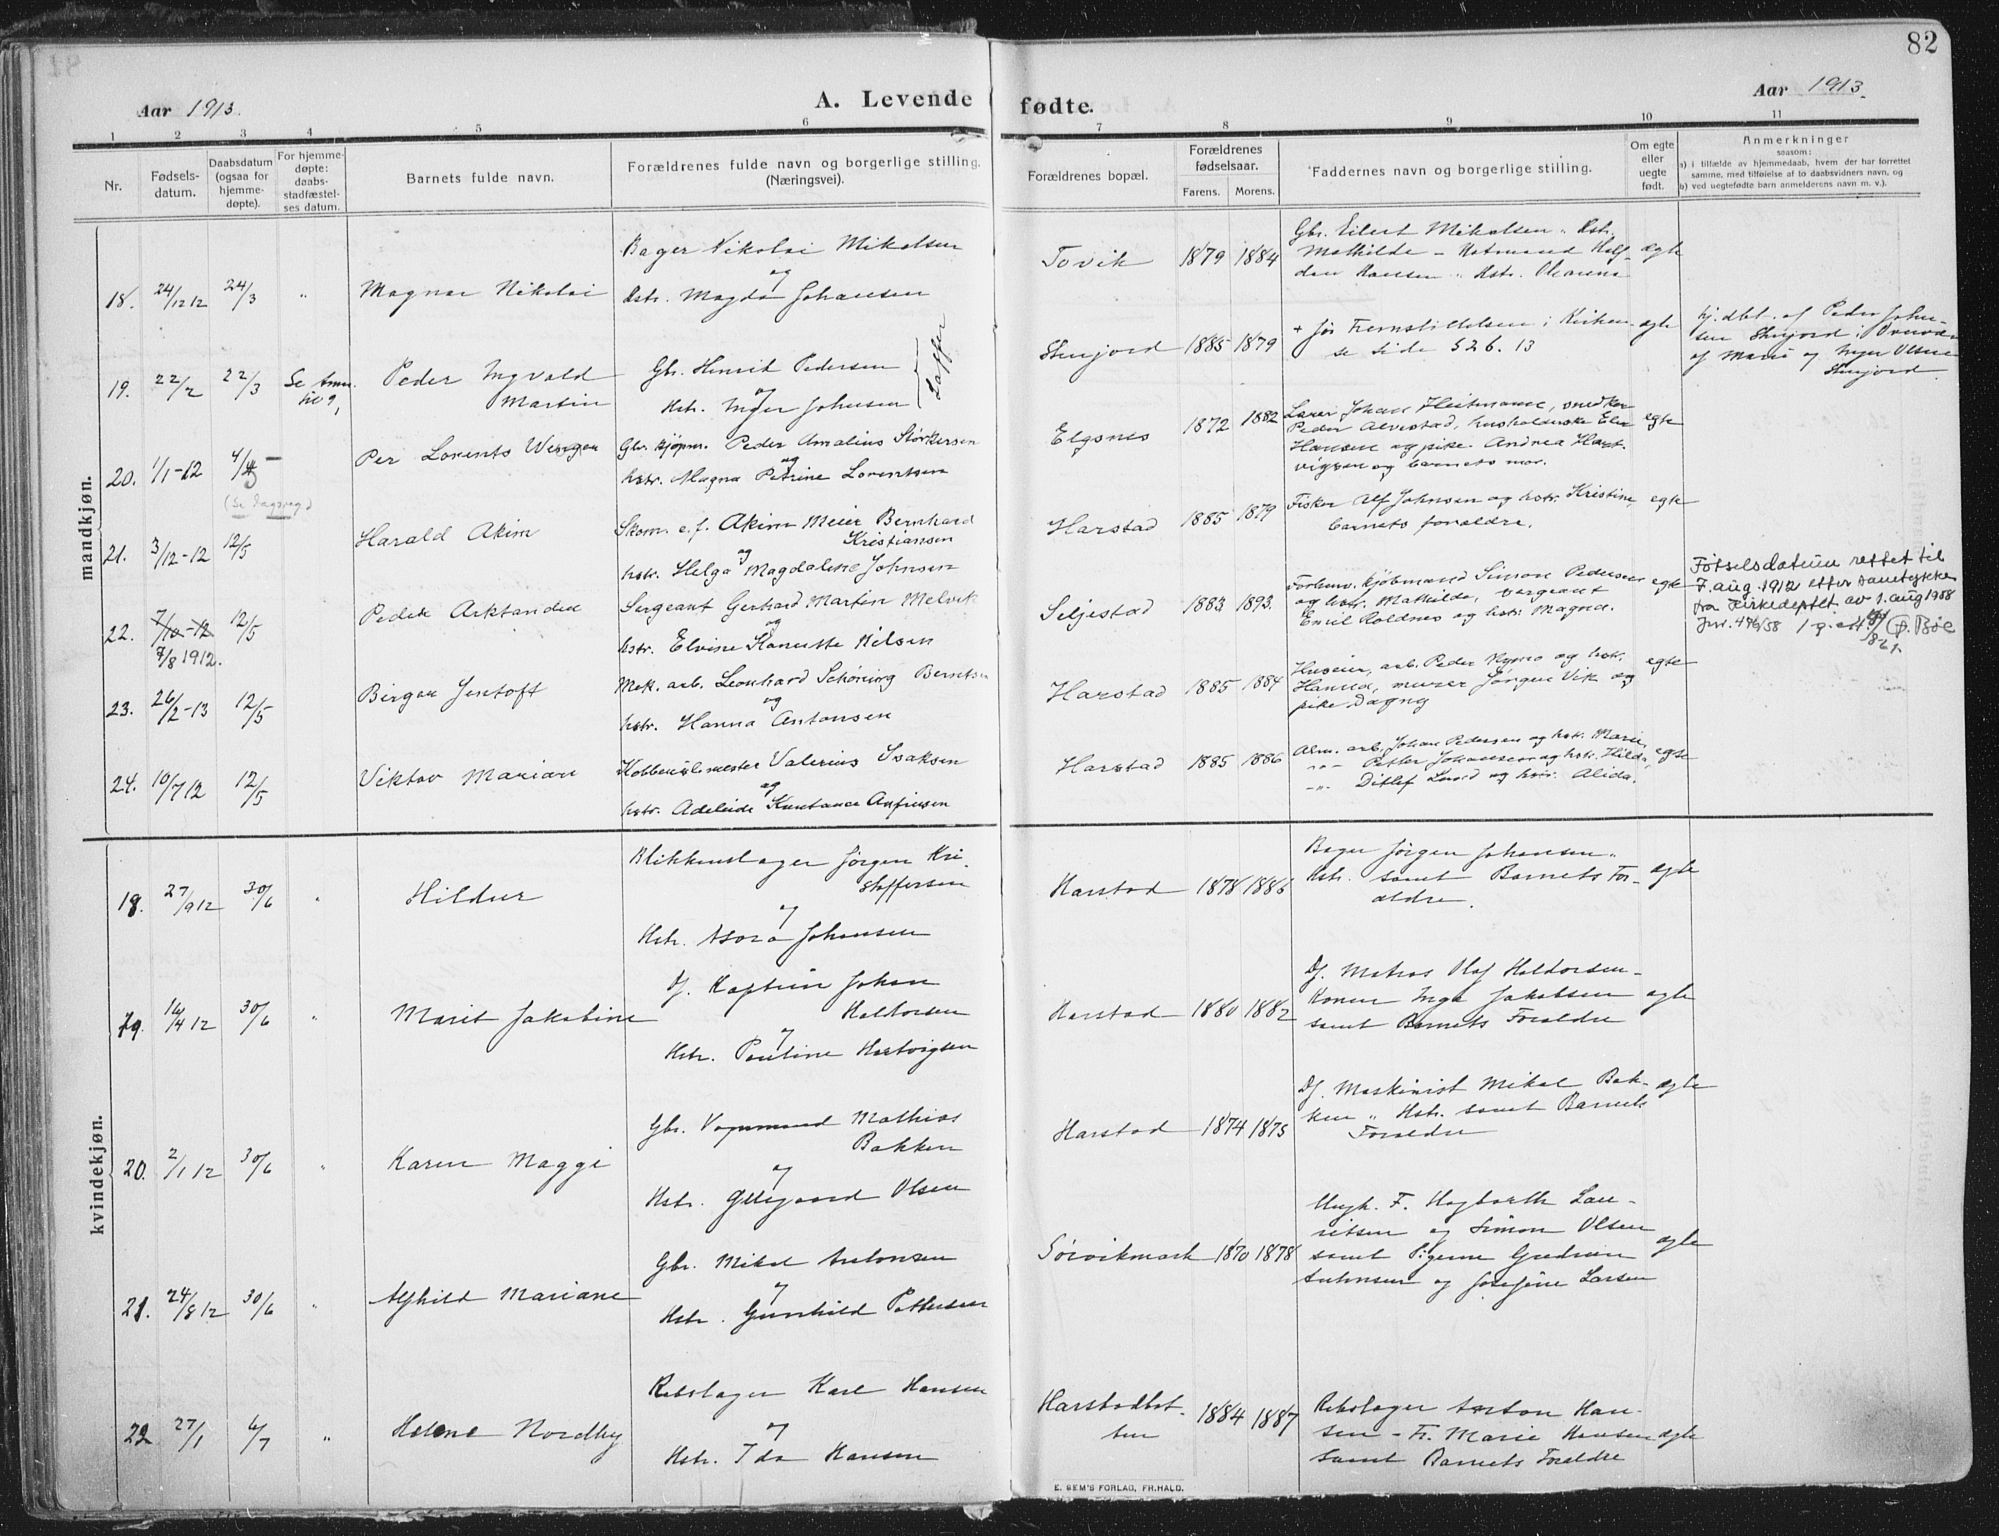 82
Aar 1913.
A. Levende fødte.
Aar 1913.
1 2 3 4 5 6 7 8 9 10 11
Nr.
Fødsels-
datum.
Daabsdatum
(ogsaa for
hjemme-
døpte).
For hjemme-
døpte:
daabs-
stadfæstel-
ses datum.
Barnets fulde navn.
Forældrenes fulde navn og borgerlige stilling.
(Næringsvei).
Forældrenes bopæl.
Forældrenes
fødselsaar.
Farens. Morens.
Faddernes navn og borgerlige stilling.
Om egte
eller
uegte
født.
Anmerkninger
saasom:
a) i tilfælde av hjemmedaab, hvem der har forrettet
samme, med tilføielse af to daabsvidners navn, og
b) ved uegtefødte barn anmelderens navn m. v.).
mandkjøn.
18. 24/12 12 24/3 " Magnar Nikolai
Bager Nikolai Mikalsen
og
Hstr. Magda Johansen
Tovik 1879 1884
Gbr. Eilert Mikalsen, Hstr.
Mathilde
dan Hansen " Hstr.
ægte
19. 22/2 22/3 Se Anm.
Peder Ingvald
Martin
Gbr. Henrik Pedersen
og
Hstr. Inger Johnsen
Stenjord 1885 1879
+ før Fremstillelsen i Kirken
se side 526. 13
ægte
hj.dbt. af Peder John-
sen Stenjord i
af Marie og Inger Olsen
Stenjord.
20. 1/1-12 4/5
(Se dagsreg)
Per Lorents
Gbr. kjøpm. Peder Amalius Størkersen
og
hstr. Magna Petrine Lorentsen
Elgsnes 1872 1882
Lærer Johan Heitmann, snedker
Peder Alvestad, husholderske
Hansen og pike. Andrea Hart-
vigsen og barnets mor.
egte
21. 3/12-12 12/5 Harald Akim
Skom. e.f. Akim Meier Bernhard
Kristiansen
og
hstr. Helga Magdaline Johnsen
Harstad 1885 1879
Fisker Alf Johnsen og hstr. Kristine,
barnets forældre.
egte
22. 7/10-12 12/5
7/8 1912.
Peder Arktander
Sergeant Gerhard Martin Melvik
og
hstr. Elvine Hanette Nilsen
Seljestad 1883 1893.
Forhenv. kjøbmand Simon Pedersen
og hstr. Mathilde, sergeant
Emil Roldnes og hstr. Magna.
egte
Fødselsdatum rettet til
7. aug. 1912 etter samtykke
fra Kirkedeptet av 1. aug 1958
Jnr. 476/58
Bøe
23. 26/2-13 12/5 Birger Jentoft
Mek. arb. Leonhard Schøning Berntsen
og
hstr. Hanna Antonsen
Harstad 1885 1884
Huseier, arb. Peder og hstr.
Hanna, murer Jørgen Vik og
pike Dagny
egte
24. 10/7 12 12/5 Viktor Marian
Valerius Isaksen
og
hstr. Adeleide Konstance Anfinsen
Harstad 1885 1886
Alm. arb. Johan Pedersen og hstr. Marie,
-"- Petter Johansen og hstr. Hilda,
-"- Ditlef Lund og hstr. Alida.
egte
kvindekjøn.
18. 27/9 12 30/6 " Hildur
Blikkenslager Jørgen Kri-
stoffersen
og
Hstr. Asora Johansen
Harstad 1878 1886
Bager Jørgen Johansen "
Hstr. samt Barnets For-
ældre.
ægte
19. 16/4 12 30/6 " Marit Jakobine
Df. Kaptein Johan
Haldorsen
og
Hstr. Pauline Hartvigsen
Harstad 1880 1882
Df. Matros Olaf Haldorsen-
Konen Inga Jakobsen
samt Barnets Forældre
ægte
20. 2/1 12 30/6 " Karen Maggi
Gbr. Vognmand Mathias
Bakken
og
Hstr. Olsen
Harstad 1874 1875
Df. Maskinist Mikal Bak-
ken " Hstr. samt Barnets
Forældre
ægte
21. 24/8 12 30/6 " Alfhild Mariane
Gbr. Mikal Antonsen
og
Hstr. Gunhild Pettersen
Sørvikmark 1870 1878
Ungk. F. Hagbarth Lau-
ritsen og Simon Olsen
samt Pigerne Gudrun
Antonsen og Josefine Larsen
ægte
22. 27/1 6/7 " Helene Nordby
Rebslager Karl Hansen
og
Hstr. Ida Hansen
Harstadbot-
ten
1884 1887
Rebslager Anton Han-
sen - Fr. Marie Hansen
samt Barnets Forældre
ægte
E. SEM'S FORLAG, FR.HALD.